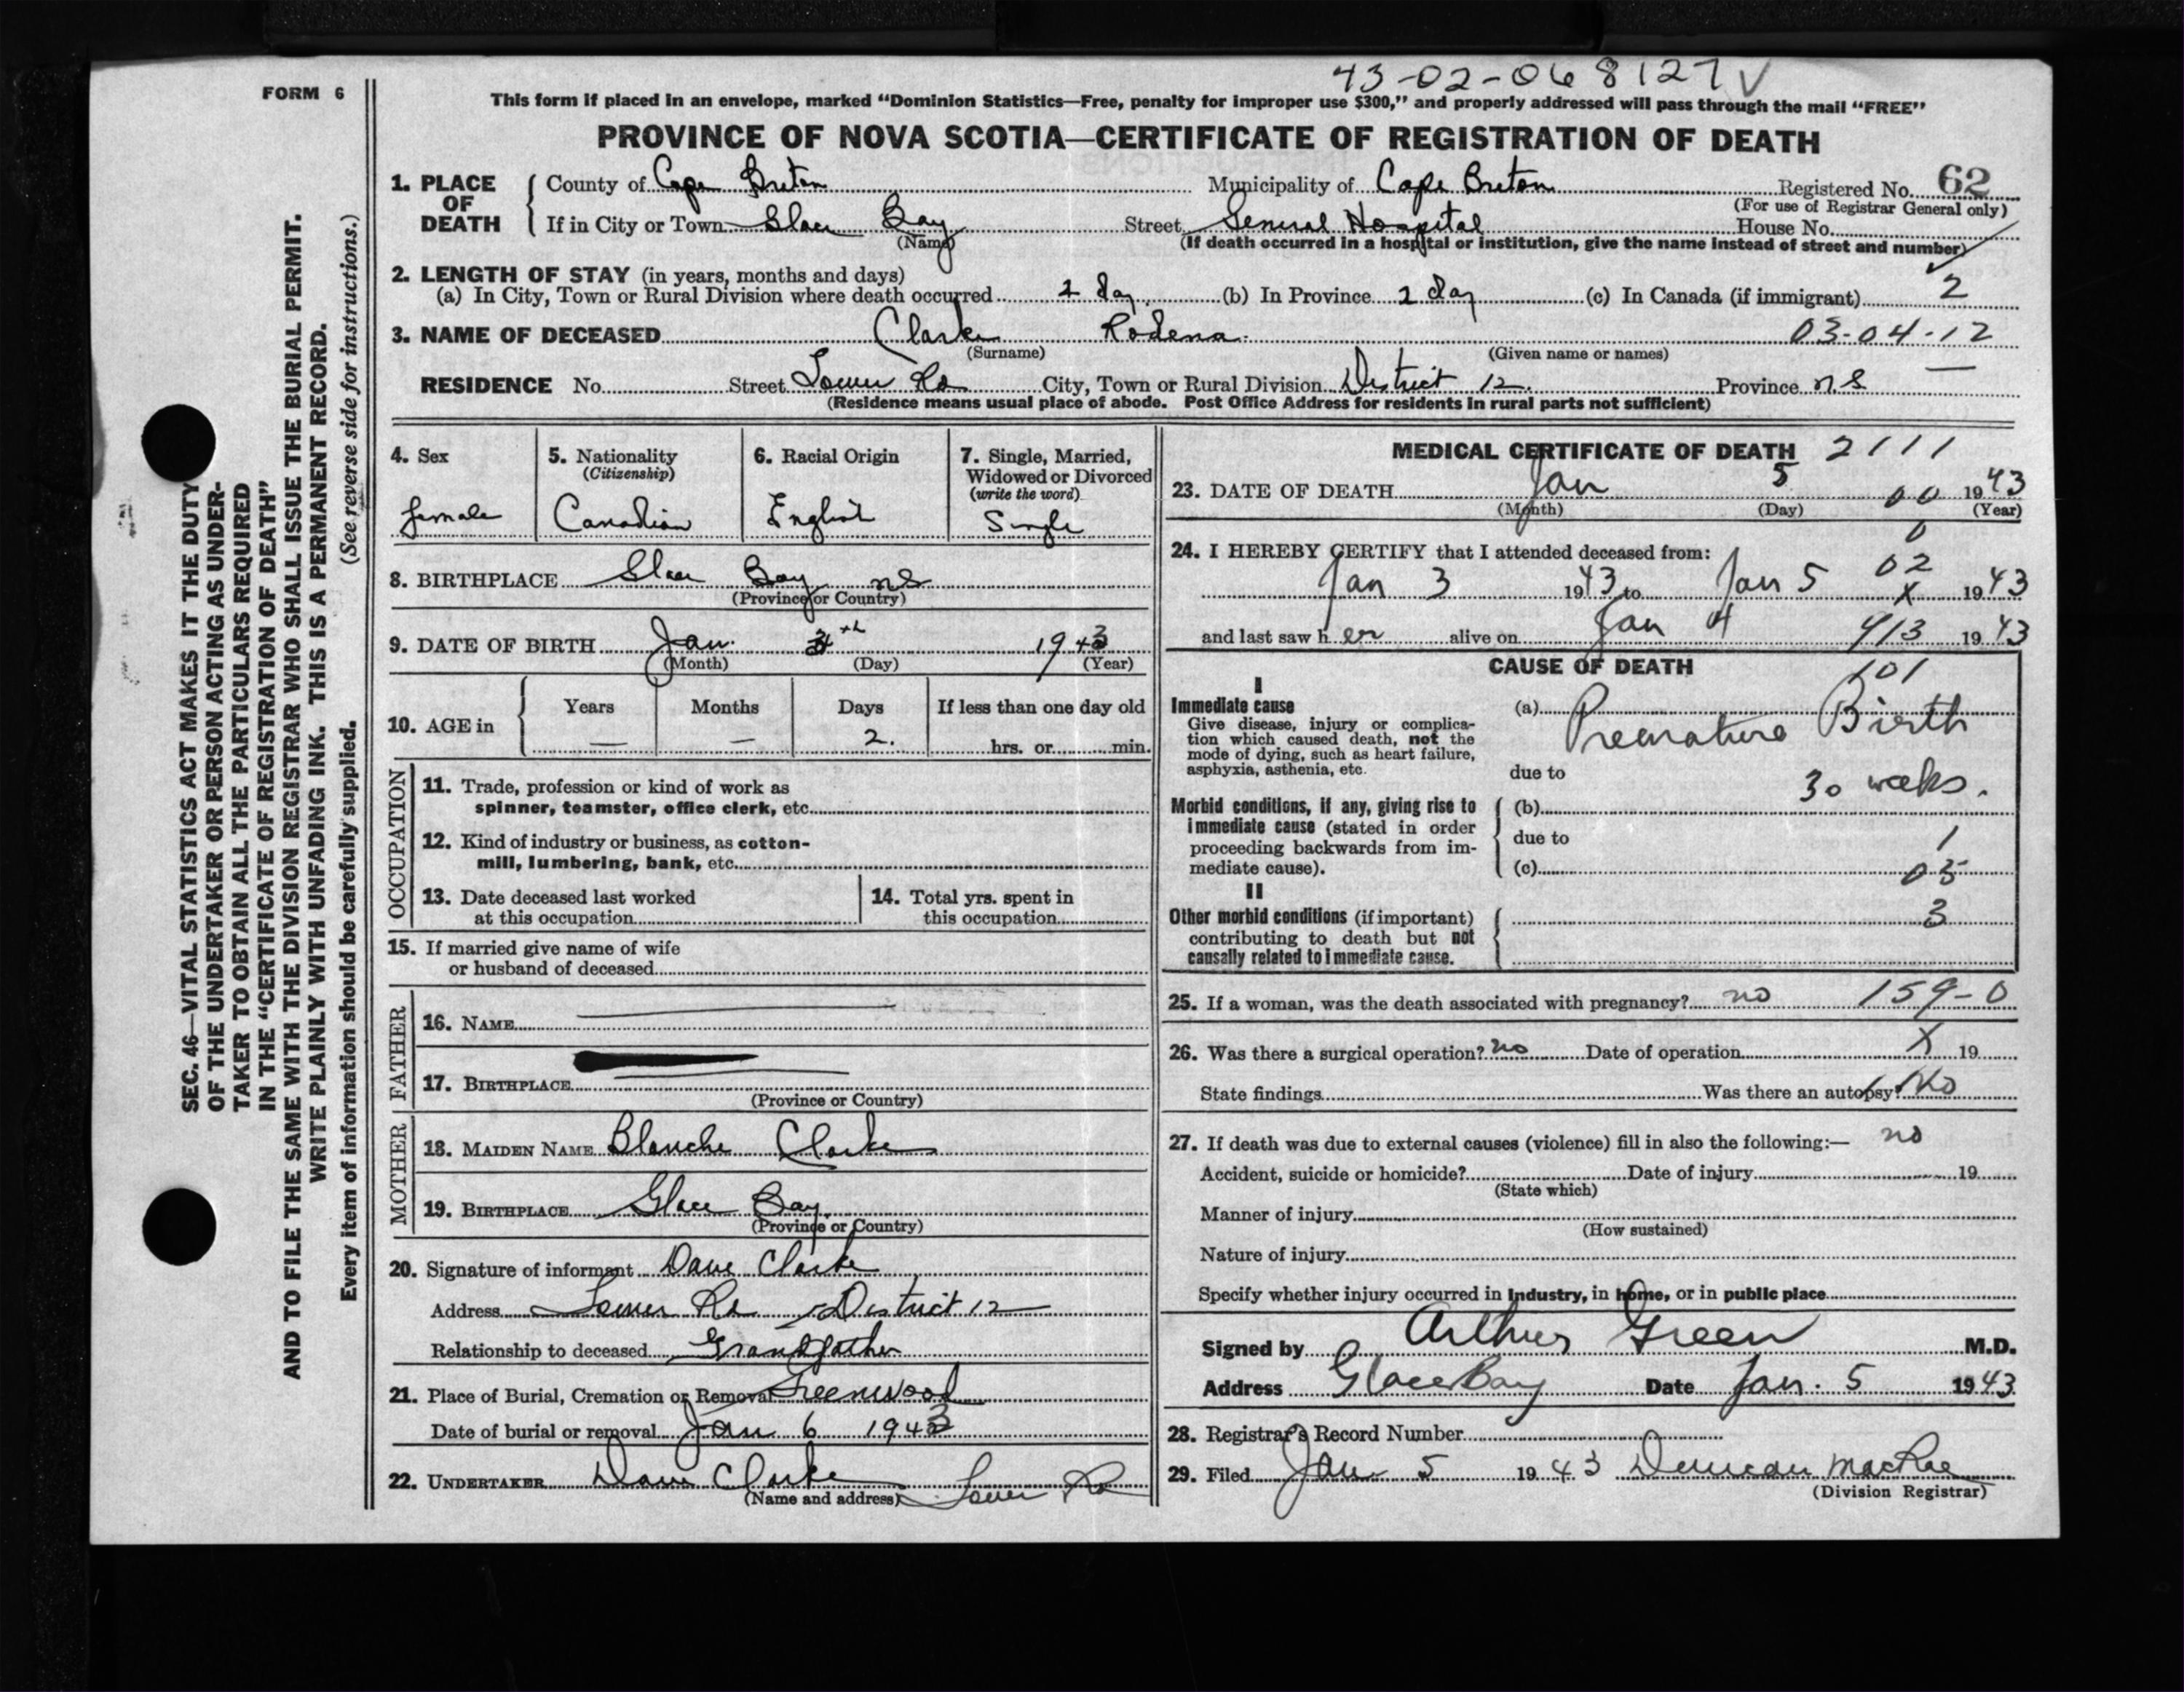 43-02-068127 V
FORM 6
This form if placed in an envelope, marked “Dominion Statistics—Free, penalty for improper use $300,” and properly addressed will pass through the mail “FREE”
PROVINCE OF NOVA SCOTIA—CERTIFICATE OF REGISTRATION OF DEATH
1. PLACE OF DEATH
County of Cape Breton Municipality of Cape Breton Registered No. 62
(For use of Registrar General only)
If in City or Town Glace Bay Street General Hospital House No.
(Name) (If death occurred in a hospital or institution, give the name instead of street and number)
2. LENGTH OF STAY (in years, months and days)
(a) In City, Town or Rural Division where death occurred 2 day (b) In Province 2 day (c) In Canada (if immigrant) 2
3. NAME OF DECEASED Clarke Rodena 03-04-12
(Surname) (Given name or names)
RESIDENCE No. Street Lower Rd City, Town or Rural Division District 12. Province N.S —
(Residence means usual place of abode. Post Office Address for residents in rural parts not sufficient)
4. Sex
female
5. Nationality
(Citizenship)
Canadian
6. Racial Origin
English
7. Single, Married,
Widowed or Divorced
(write the word)
Single
8. BIRTHPLACE Glace Bay NS
(Province or Country)
9. DATE OF BIRTH Jan. 3 1943
(Month) (Day) (Year)
10. AGE in
Years Months Days If less than one day old
— — 2. hrs. or min.
OCCUPATION
11. Trade, profession or kind of work as
spinner, teamster, office clerk, etc.
12. Kind of industry or business, as cotton-
mill, lumbering, bank, etc.
13. Date deceased last worked
at this occupation
14. Total yrs. spent in
this occupation
15. If married give name of wife
or husband of deceased
FATHER
16. NAME
17. BIRTHPLACE
(Province or Country)
MOTHER
18. MAIDEN NAME Blanche Clarke
19. BIRTHPLACE Glace Bay
(Province or Country)
20. Signature of informant Dave Clarke
Address Lower Rd District 12
Relationship to deceased Grandfather
21. Place of Burial, Cremation or Removal Greenwood
Date of burial or removal Jan 6 1943
22. UNDERTAKER Dave Clarke Lower Rd
(Name and address)
MEDICAL CERTIFICATE OF DEATH 2111
23. DATE OF DEATH Jan 5 00 1943
(Month) (Day) (Year)
0
24. I HEREBY CERTIFY that I attended deceased from: 02
Jan 3 1943 to Jan 5 X 1943
and last saw her alive on Jan 4 413 1943
CAUSE OF DEATH 101
I
Immediate cause
Give disease, injury or complica-
tion which caused death, not the
mode of dying, such as heart failure,
asphyxia, asthenia, etc.
(a) Premature Birth
due to 30 weeks.
Morbid conditions, if any, giving rise to
immediate cause (stated in order
proceeding backwards from im-
mediate cause).
(b)
due to 1
(c) 05
II
Other morbid conditions (if important)
contributing to death but not
causally related to immediate cause.
3
25. If a woman, was the death associated with pregnancy? no 159-0
26. Was there a surgical operation? no Date of operation X 19
State findings Was there an autopsy? No
27. If death was due to external causes (violence) fill in also the following:— no
Accident, suicide or homicide? Date of injury 19
(State which)
Manner of injury
(How sustained)
Nature of injury
Specify whether injury occurred in Industry, in home, or in public place
Signed by Arthur Green M.D.
Address Glace Bay Date Jan. 5 1943
28. Registrar's Record Number
29. Filed Jan 5 1943 Duncan MacRae
(Division Registrar)
SEC. 46—VITAL STATISTICS ACT MAKES IT THE DUTY
OF THE UNDERTAKER OR PERSON ACTING AS UNDER-
TAKER TO OBTAIN ALL THE PARTICULARS REQUIRED
IN THE “CERTIFICATE OF REGISTRATION OF DEATH”
AND TO FILE THE SAME WITH THE DIVISION REGISTRAR WHO SHALL ISSUE THE BURIAL PERMIT.
WRITE PLAINLY WITH UNFADING INK. THIS IS A PERMANENT RECORD.
Every item of information should be carefully supplied. (See reverse side for instructions.)